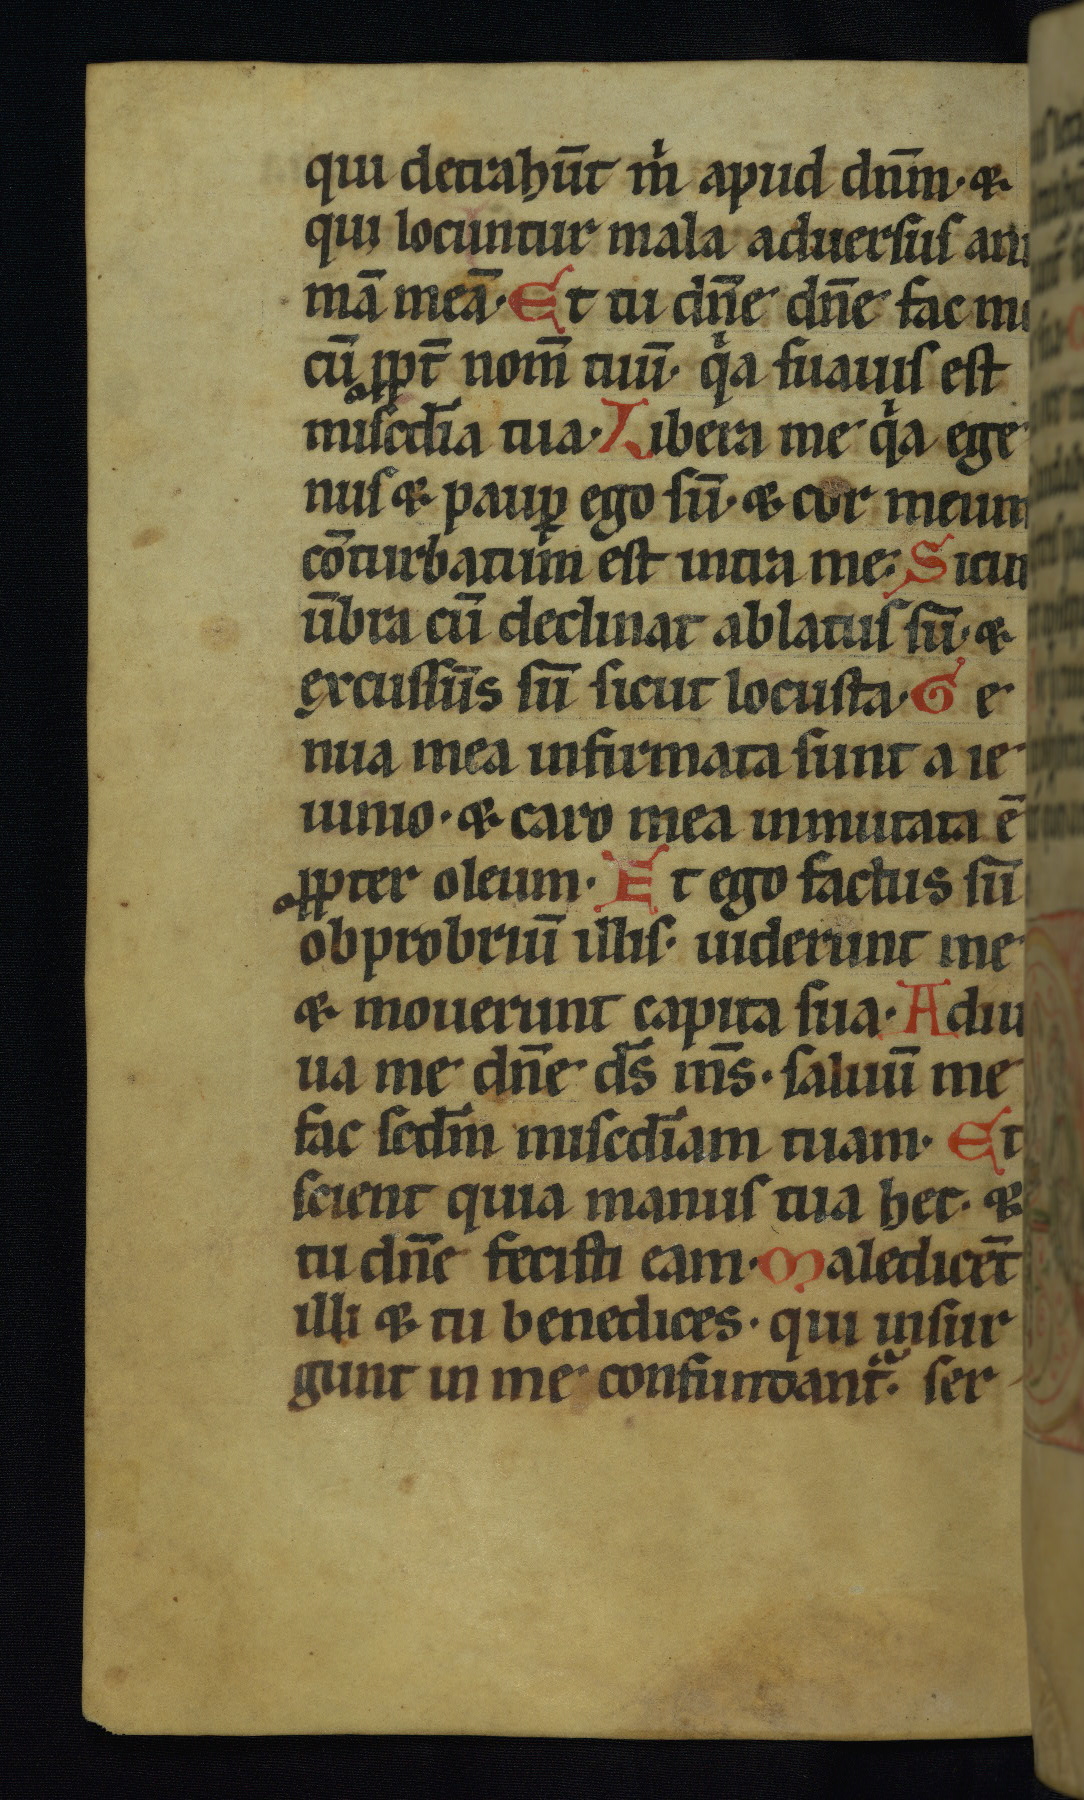 qui detrahūt m̍ apud dn̄m · &
qui locuntur mala aduersus ani
mā meā · Et tu dn̄e dn̄e fac me
cū ꝓpt̄ nom̄ tuū · q̍a suauis est
misc̄dia tua · Libera me q̍a ege
nus & paup̱ ego sū · & cor meum
cōturbatum est intra me · Sicut
ūbra cū declinat ablatus sū · &
excussus sū sicut locusta · Ge
nua mea infirmata sunt a ie
iunio · & caro mea inmutata ē
ꝓpter oleum · Et ego factus sū
obprobriū illis · uiderunt me
& mouerunt capita sua · Adiu
ua me dn̄e ds̄ ms̄ · saluū me
fac scd̄m misc̄diam tuam · Et
scient quia manus tua hec · &
tu dn̄e fecisti eam · Maledicēt
illi & tu benedices · qui insur
gunt in me confundant᷑ · ser